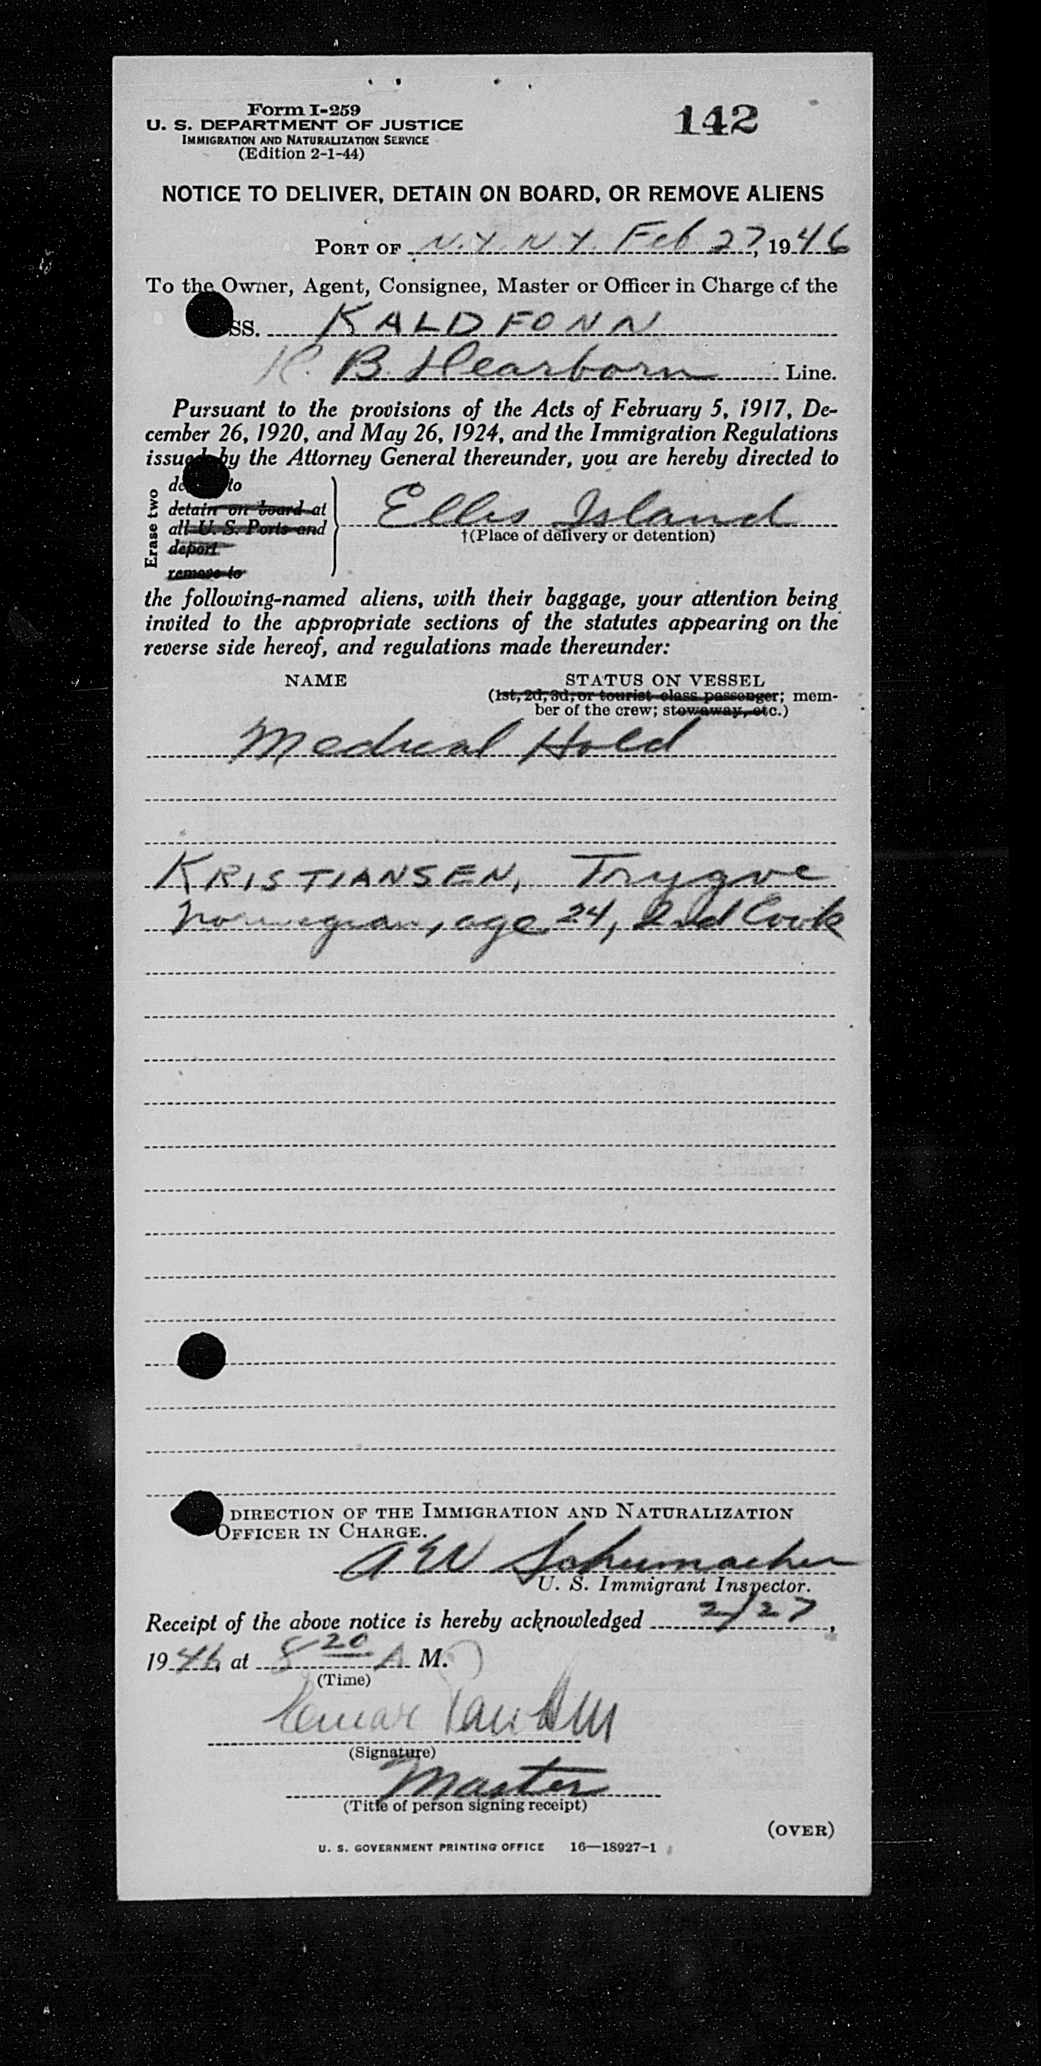 Form I-259
142
U. S. DEPARTMENT OF JUSTICE
IMMIGRATION AND NATURALIZATION SERVICE
(Edition 2-1-44)
NOTICE TO DELIVER, DETAIN ON BOARD, OR REMOVE ALIENS
PORT OF N.Y. N.Y. Feb 27, 1946
To the Owner, Agent, Consignee, Master or Officer in Charge of the
SS. KALDFONN
B. Dearborn Line.
Pursuant to the provisions of the Acts of February 5, 1917, De-
cember 26, 1920, and May 26, 1924, and the Immigration Regulations
issued by the Attorney General thereunder, you are hereby directed to
Erase two
to
detain on board at
all U. S. Ports and
deport
remove to
Ellis Island
†(Place of delivery or detention)
the following-named aliens, with their baggage, your attention being
invited to the appropriate sections of the statutes appearing on the
reverse side hereof, and regulations made thereunder:
NAME STATUS ON VESSEL
(1st, 2d, 3d, or tourist class passenger; mem-
ber of the crew; stowaway, etc.)
Medical Hold
KRISTIANSEN, Trygve
Norwegian, age 24, 2nd Cook
DIRECTION OF THE IMMIGRATION AND NATURALIZATION
OFFICER IN CHARGE.
A W Schumacher
U. S. Immigrant Inspector.
Receipt of the above notice is hereby acknowledged 2/27,
1946, at 8 20 A M.
(Time)
(Signature)
Master
(Title of person signing receipt)
(OVER)
U. S. GOVERNMENT PRINTING OFFICE 16—18927-1